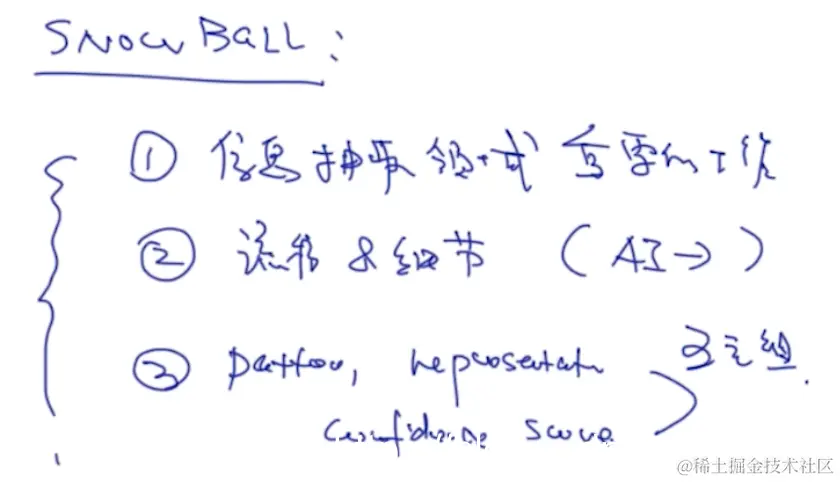 SNOWBALL:
① 信息抽取领域重要的工作
② 流程&细节 (AI→)
③ pattern, representatn 五元组.
confidence score
@稀土掘金技术社区